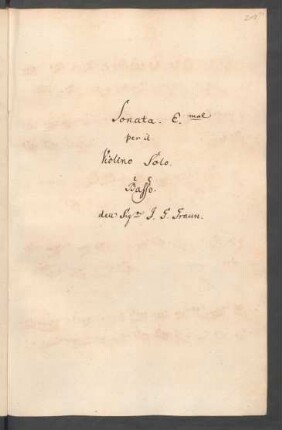 Sonata. E. mol
per il
Violino Solo.
e
Basso.
del Sigr. J. G. Graun.